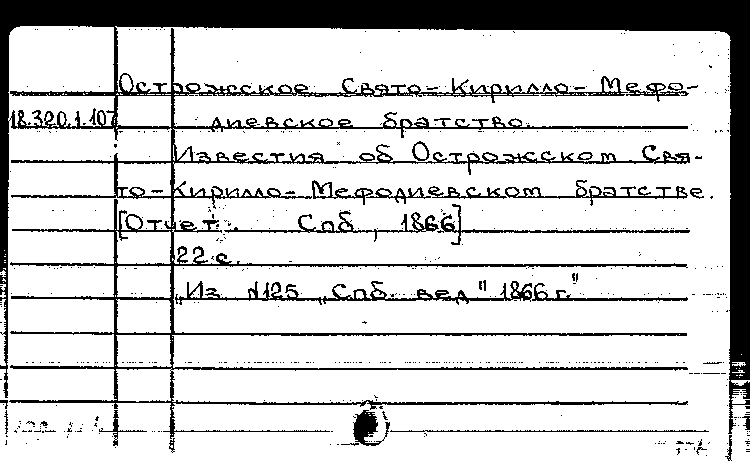 Острожское Свято-Кирилло-Мефо-
18.320.1.107 диевское братство.
Известия об Острожском Свя-
то-Кирилло-Мефодиевском братстве.
[Отчет. Спб, 1866]
22 с.
„Из N125 „Спб. вед" 1866 г."